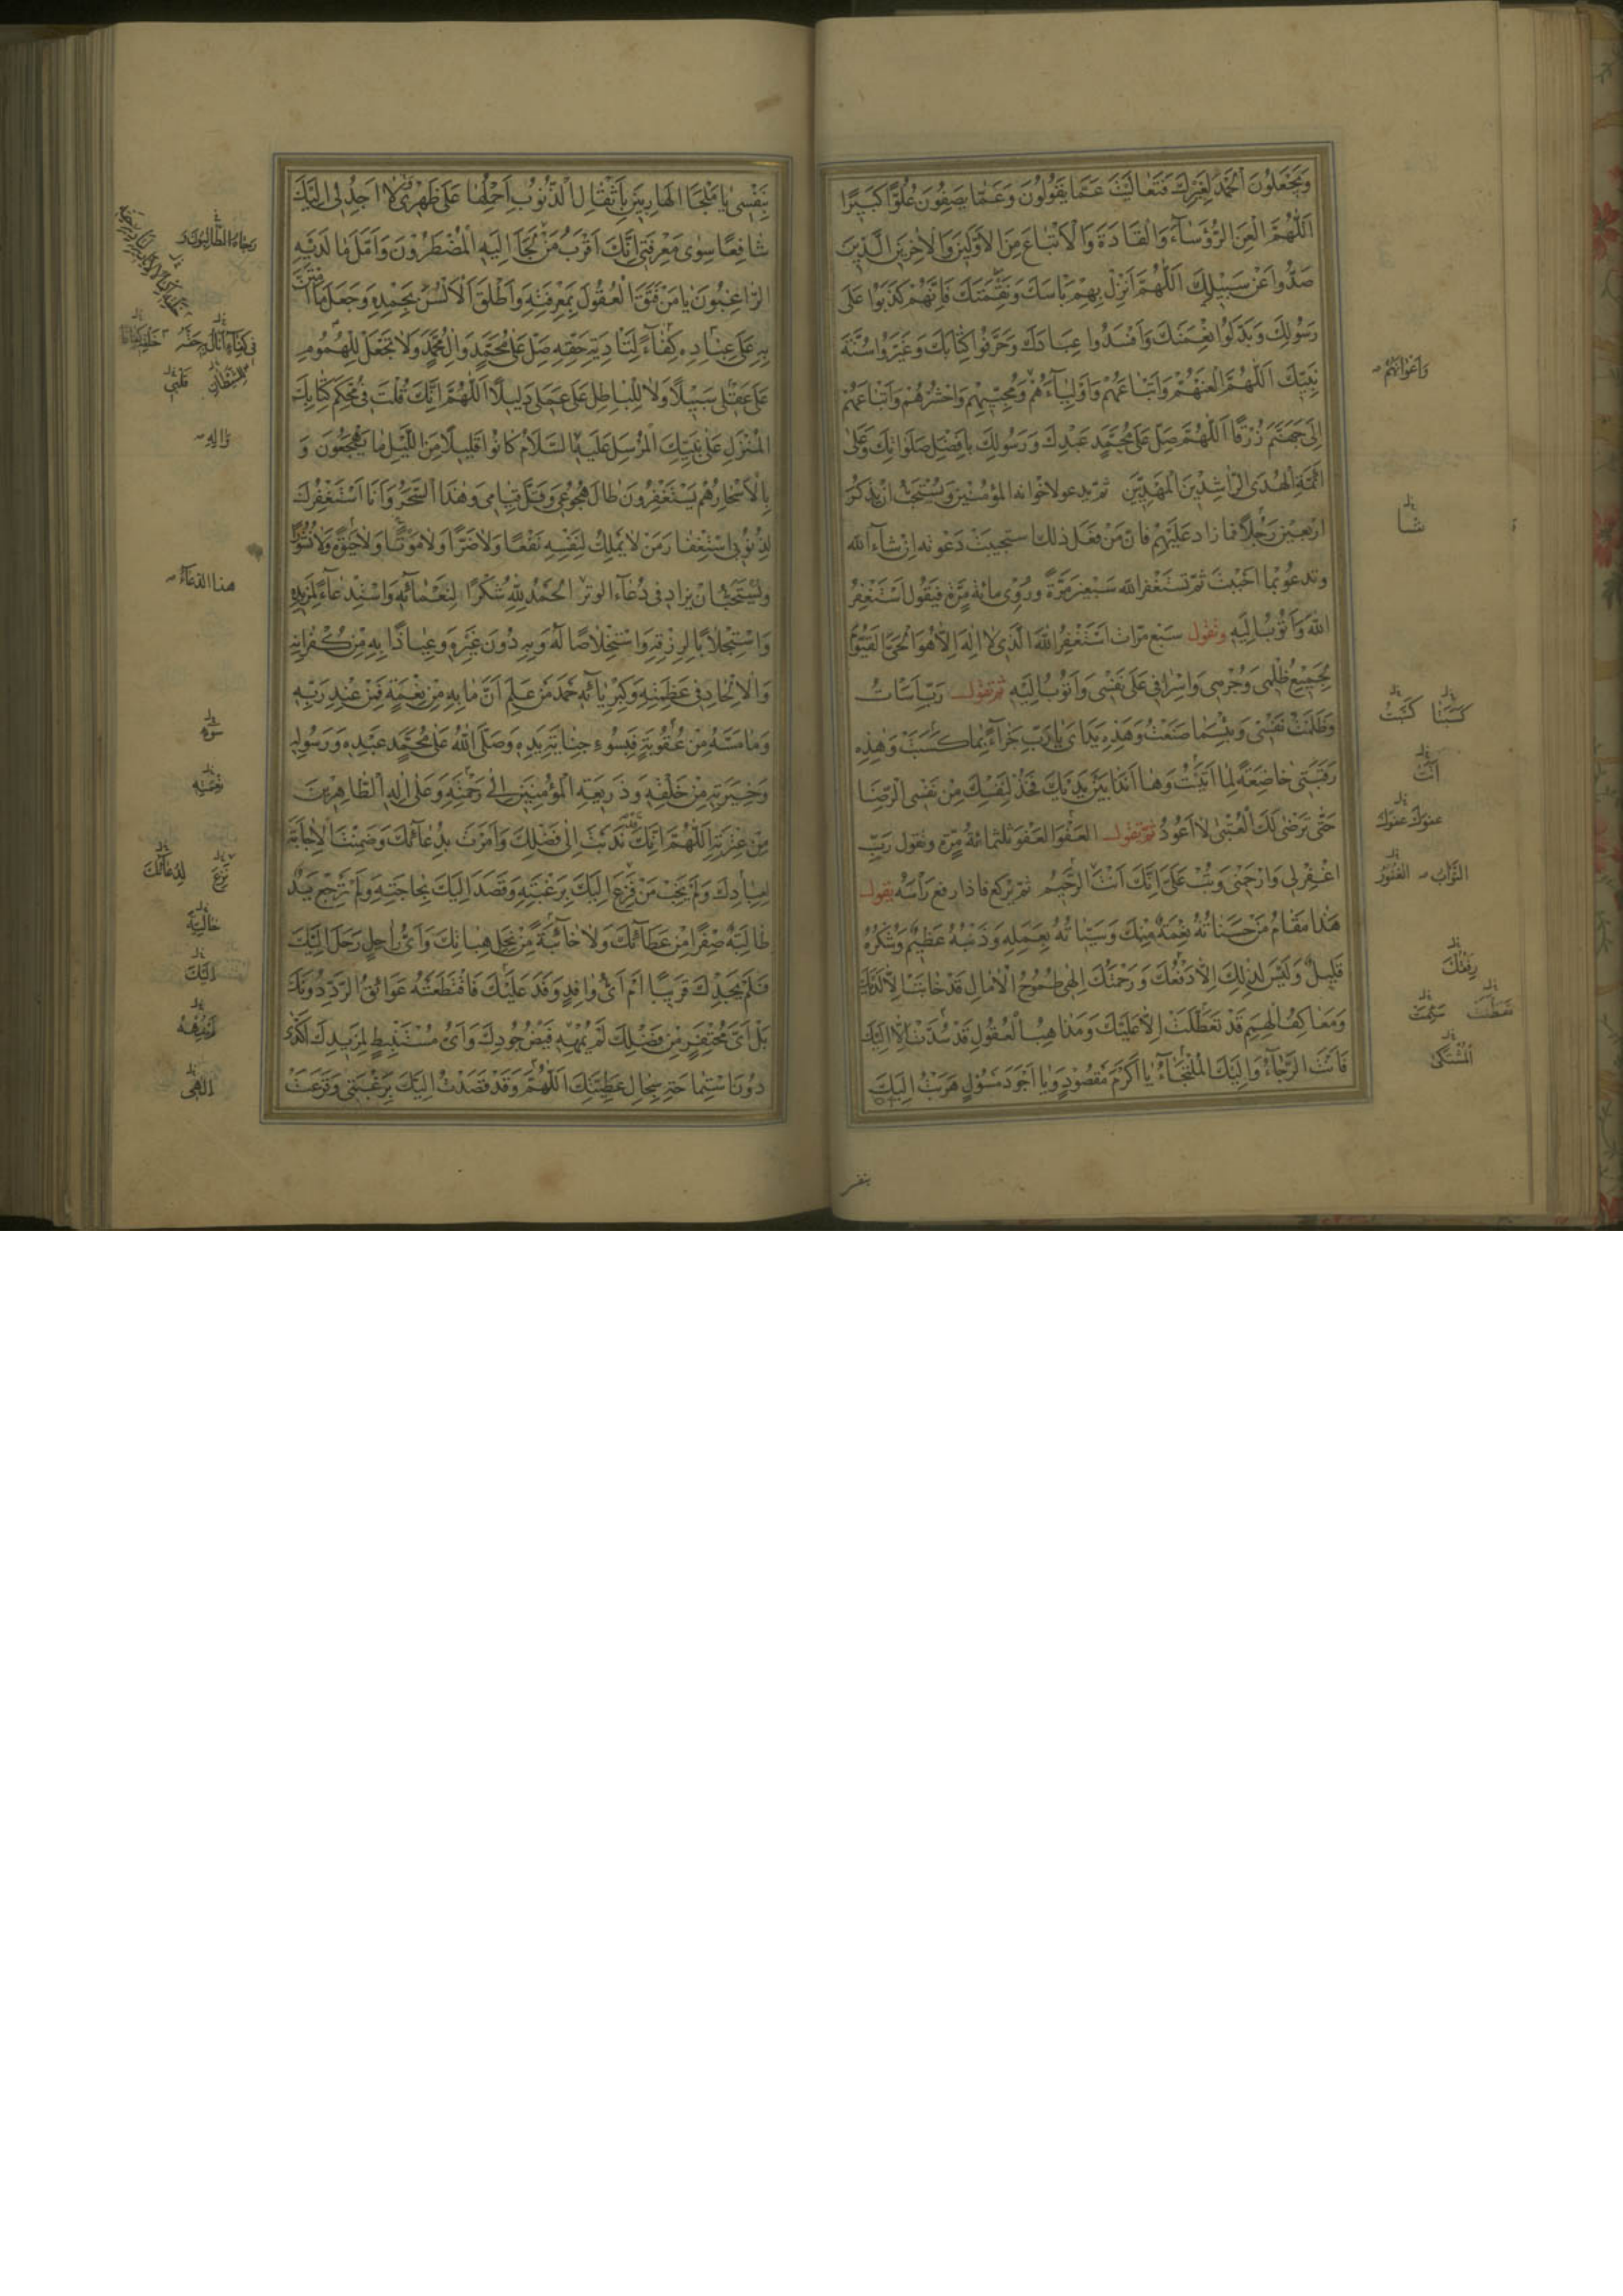 وَيَجْعَلُونَ الْحَمْدَ لِغَيْرِكَ فَتَعَالَيْتَ عَمَّا يَقُولُونَ وَعَمَّا يَصِفُونَ عُلُوًّا كَبِيرًا
اَللّٰهُمَّ الْعَنِ الرُّؤَسَآءَ وَالْقَادَةَ وَالْاَتْبَاعَ مِنَ الْاَوَّلِينَ وَالْاٰخِرِينَ الَّذِينَ
صَدُّوا عَنْ سَبِيلِكَ اَللّٰهُمَّ اَنْزِلْ بِهِمْ بَاْسَكَ وَنَقِمَتَكَ فَاِنَّهُمْ كَذَبُوا عَلٰى
رَسُولِكَ وَبَدَّلُوا نِعْمَتَكَ وَاَفْسَدُوا عِبَادَكَ وَحَرَّفُوا كِتَابَكَ وَغَيَّرُوا سُنَّةَ
نَبِيِّكَ اَللّٰهُمَّ الْعَنْهُمْ وَاَتْبَاعَهُمْ وَاَوْلِيَآءَهُمْ وَمُحِبِّيهِمْ وَاحْشُرْهُمْ وَاَتْبَاعَهُمْ
وَاَعْوَانَهُمْ
اِلٰى جَهَنَّمَ زُرْقًا اَللّٰهُمَّ صَلِّ عَلٰى مُحَمَّدٍ عَبْدِكَ وَرَسُولِكَ بِاَفْضَلِ صَلَوَاتِكَ وَعَلٰى
اَئِمَّةِ الْهُدَى الرَّاشِدِينَ الْمَهْدِيِّينَ ثم يدعو لاخوانه المؤمنين ويستحب ان يذكر
اربعين رجلا فما زاد عليهم فان من فعل ذلك استجيبت دعوته ان شاء الله
شا
وتدعو بما احببت ثم تستغفر الله سبعين مرة وروى مائة مرة فيقول اَسْتَغْفِرُ
اللهَ وَاَتُوبُ اِلَيْهِ وتقول سبع مرات اَسْتَغْفِرُ اللهَ الَّذِي لَا اِلٰهَ اِلَّا هُوَ الْحَيُّ الْقَيُّومُ
لِجَمِيعِ ظُلْمِي وَجُرْمِي وَاِسْرَافِي عَلٰى نَفْسِي وَاَتُوبُ اِلَيْهِ ثم تقول رَبِّ اَسَاْتُ
وَظَلَمْتُ نَفْسِي وَبِئْسَمَا صَنَعْتُ وَهٰذِهِ يَدَايَ يَا رَبِّ جَزَآءً بِمَا كَسَبَتْ وَهٰذِهِ
كَسَبَتَا كَسَبْتُ
رَقَبَتِي خَاضِعَةً لِمَا اَتَيْتُ وَهَا اَنَا ذَا بَيْنَ يَدَيْكَ فَخُذْ لِنَفْسِكَ مِنْ نَفْسِي الرِّضَا
حَتّٰى تَرْضٰى لَكَ الْعُتْبٰى لَا اَعُودُ ثم تقول العفو العفو ثلثمائة مرة وتقول رَبِّ
عفوك عفوك
اغْفِرْ لِي وَارْحَمْنِي وَتُبْ عَلَيَّ اِنَّكَ اَنْتَ الرَّحِيمُ ثم يركع فاذا رفع راسه يقول
التَّوَّابُ الْغَفُورُ
هٰذَا مَقَامُ مَنْ حَسَنَاتُهُ نِعْمَةٌ مِنْكَ وَسَيِّئَاتُهُ بِعَمَلِهِ وَذَنْبُهُ عَظِيمٌ وَشُكْرُهُ
قَلِيلٌ وَلَيْسَ لِذٰلِكَ اِلَّا دَفْعُكَ وَرَحْمَتُكَ اِلٰهِي طُمُوحُ الْاٰمَالِ قَدْ خَابَتْ اِلَّا لَدَيْكَ
رِفْقُكَ
وَمَعَاكِفُ الْهِمَمِ قَدْ تَعَطَّلَتْ اِلَّا عَلَيْكَ وَمَذَاهِبُ الْعُقُولِ قَدْ سُدَّتْ اِلَّا اِلَيْكَ
فَاَنْتَ الرَّجَآءُ وَاِلَيْكَ الْمُلْتَجَآءُ يَا اَكْرَمَ مَقْصُودٍ وَيَا اَجْوَدَ مَسْؤُلٍ هَرَبْتُ اِلَيْكَ
الْمُشْتَكٰى
بنفسى
بِنَفْسِي يَا مَلْجَاَ الْهَارِبِينَ بِاَثْقَالِ الذُّنُوبِ اَحْمِلُهَا عَلٰى ظَهْرِي لَا اَجِدُ لِي اِلَيْكَ
شَافِعًا سِوٰى مَعْرِفَتِي اِنَّكَ اَقْرَبُ مَنْ لَجَاَ اِلَيْهِ الْمُضْطَرُّونَ وَاَمَّلَ مَا لَدَيْهِ
رجاه الطالبون
الرَّاغِبُونَ يَا مَنْ فَتَقَ الْعُقُولَ بِمَعْرِفَتِهِ وَاَطْلَقَ الْاَلْسُنَ بِحَمْدِهِ وَجَعَلَ مَا امْتَنَّ
بِهِ عَلٰى عِبَادِهِ كِفَآءً لِتَاْدِيَةِ حَقِّهِ صَلِّ عَلٰى مُحَمَّدٍ وَاٰلِ مُحَمَّدٍ وَلَا تَجْعَلْ لِلْهُمُومِ
عَلٰى عَقْلِي سَبِيلًا وَلَا لِلْبَاطِلِ عَلٰى عَمَلِي دَلِيلًا اَللّٰهُمَّ اِنَّكَ قُلْتَ فِي مُحْكَمِ كِتَابِكَ
لِلشَّيْطَانِ
الْمُنْزَلِ عَلٰى نَبِيِّكَ الْمُرْسَلِ عَلَيْهِ السَّلَامُ كَانُوا قَلِيلًا مِنَ اللَّيْلِ مَا يَهْجَعُونَ وَ
وَاٰلِهِ
بِالْاَسْحَارِ هُمْ يَسْتَغْفِرُونَ طَالَ هُجُوعِي وَقَلَّ قِيَامِي وَهٰذَا السَّحَرُ وَاَنَا اَسْتَغْفِرُكَ
لِذُنُوبِي اسْتِغْفَارَ مَنْ لَا يَمْلِكُ لِنَفْسِهِ نَفْعًا وَلَا ضَرًّا وَلَا مَوْتًا وَلَا حَيٰوةً وَلَا نُشُورًا
ويستحب ان يزاد فى دعاء الوتر اَلْحَمْدُ لِلّٰهِ شُكْرًا لِنَعْمَائِهِ وَاسْتِدْعَآءً لِمَزِيدِهِ
هذا الدعاء
وَاسْتِجْلَابًا لِرِزْقِهِ وَاسْتِخْلَاصًا لَهُ وَبِهِ دُونَ غَيْرِهِ وَعِيَاذًا بِهِ مِنْ كُفْرَانِهِ
وَالْاِلْحَادِ فِي عَظَمَتِهِ وَكِبْرِيَائِهِ حَمْدَ مَنْ عَلِمَ اَنَّ مَا بِهِ مِنْ نِعْمَةٍ فَمِنْ عِنْدِ رَبِّهِ
وَمَا مَسَّهُ مِنْ عُقُوبَةٍ فَبِسُوءِ جِنَايَةِ يَدِهِ وَصَلَّى اللهُ عَلٰى مُحَمَّدٍ عَبْدِهِ وَرَسُولِهِ
وَخِيَرَتِهِ مِنْ خَلْقِهِ وَذَرِيعَةِ الْمُؤْمِنِينَ اِلٰى رَحْمَتِهِ وَعَلٰى اٰلِهِ الطَّاهِرِينَ
مِنْ عِتْرَتِهِ اَللّٰهُمَّ اِنَّكَ نَدَبْتَ اِلٰى فَضْلِكَ وَاَمَرْتَ بِدُعَائِكَ وَضَمِنْتَ الْاِجَابَةَ
لِعِبَادِكَ وَلَمْ يَخِبْ مَنْ فَزِعَ اِلَيْكَ بِرَغْبَتِهِ وَقَصَدَ اِلَيْكَ بِحَاجَتِهِ وَلَمْ تَرْجِعْ يَدٌ
لِدُعَائِكَ
طَالِبَةٌ صِفْرًا مِنْ عَطَائِكَ وَلَا خَائِبَةً مِنْ نِحَلِ هِبَاتِكَ وَاَيُّ رَاحِلٍ رَحَلَ اِلَيْكَ
فَلَمْ يَجِدْكَ قَرِيبًا اَمْ اَيُّ وَافِدٍ وَفَدَ عَلَيْكَ فَاقْتَطَعَتْهُ عَوَائِقُ الرَّدِّ دُونَكَ
اليك
بَلْ اَيُّ مُحْتَفِرٍ مِنْ فَضْلِكَ لَمْ يُمْهِهِ فَيْضُ جُودِكَ وَاَيُّ مُسْتَنْبِطٍ لِمَزِيدِكَ اَكْدٰى
دُونَ اسْتِمَاحَةِ سِجَالِ عَطِيَّتِكَ اَللّٰهُمَّ وَقَدْ قَصَدْتُ اِلَيْكَ بِرَغْبَتِي وَقَرَعَتْ
الهى